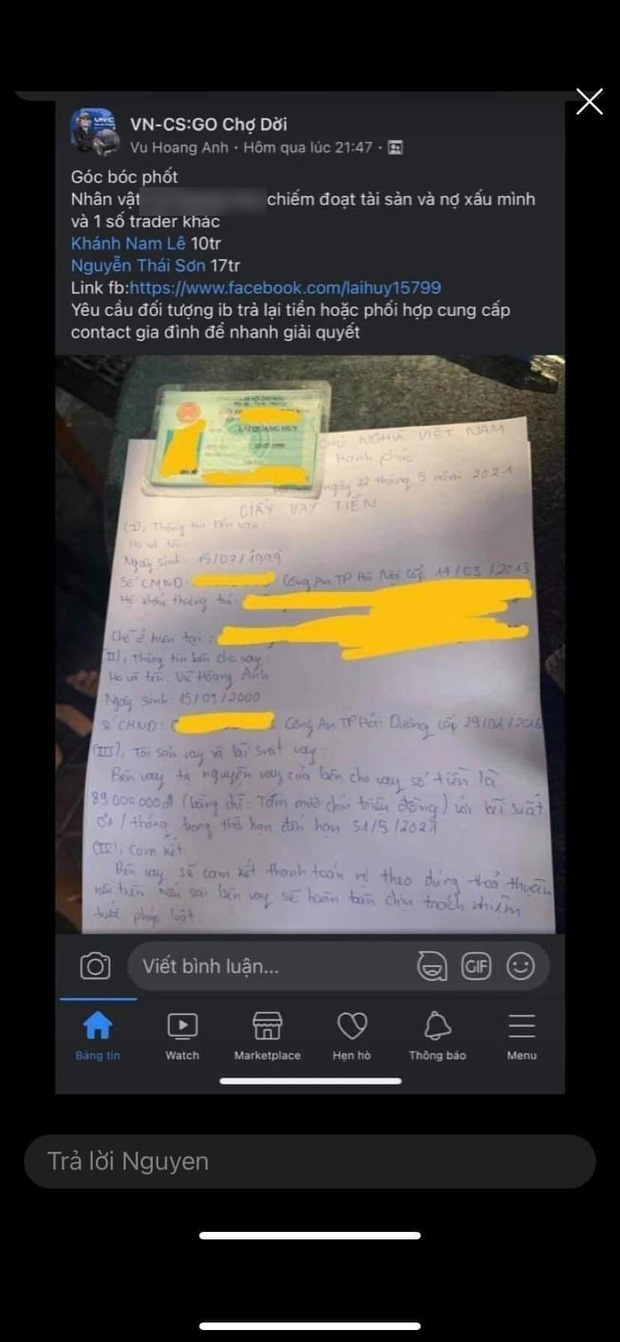 VN-CS:GO Chợ Dời
Vu Hoang Anh · Hôm qua lúc 21:47 ·
Góc bóc phốt
Nhân vật chiếm đoạt tài sản và nợ xấu mình
và 1 số trader khác
Khánh Nam Lê 10tr
Nguyễn Thái Sơn 17tr
Link fb:https://www.facebook.com/laihuy15799
Yêu cầu đối tượng ib trả lại tiền hoặc phối hợp cung cấp
contact gia đình để nhanh giải quyết
LẠI QUANG HUY
CHỦ NGHĨA VIỆT NAM
Hạnh phúc
ngày 22 tháng 5 năm 2021
GIẤY VAY TIỀN
(I), Thông tin bên vay
Họ và tên:
Ngày sinh: 15/07/1999
Số CMND: Công An TP Hà Nội cấp 14/03/2013
Hộ khẩu thường trú:
Chỗ ở hiện tại:
II), Thông tin bên cho vay:
Họ và tên: Vũ Hoàng Anh
Ngày sinh: 15/09/2000
Số CMND: Công An TP Hải Dương cấp
(III), Tài sản vay và lãi suất vay:
Bên vay tự nguyện vay của bên cho vay số tiền là
89.000.000đ (bằng chữ: Tám mươi chín triệu đồng) với lãi suất
0%/tháng trong thời hạn đến hạn 31/5/2021
(IV), Cam kết:
Bên vay sẽ cam kết thanh toán nợ theo đúng thoả thuận
nêu trên. Nếu sai bên vay sẽ hoàn toàn chịu trách nhiệm
trước pháp luật
Viết bình luận...
GIF
Bảng tin
Watch
Marketplace
Hẹn hò
Thông báo
Menu
Trả lời Nguyen